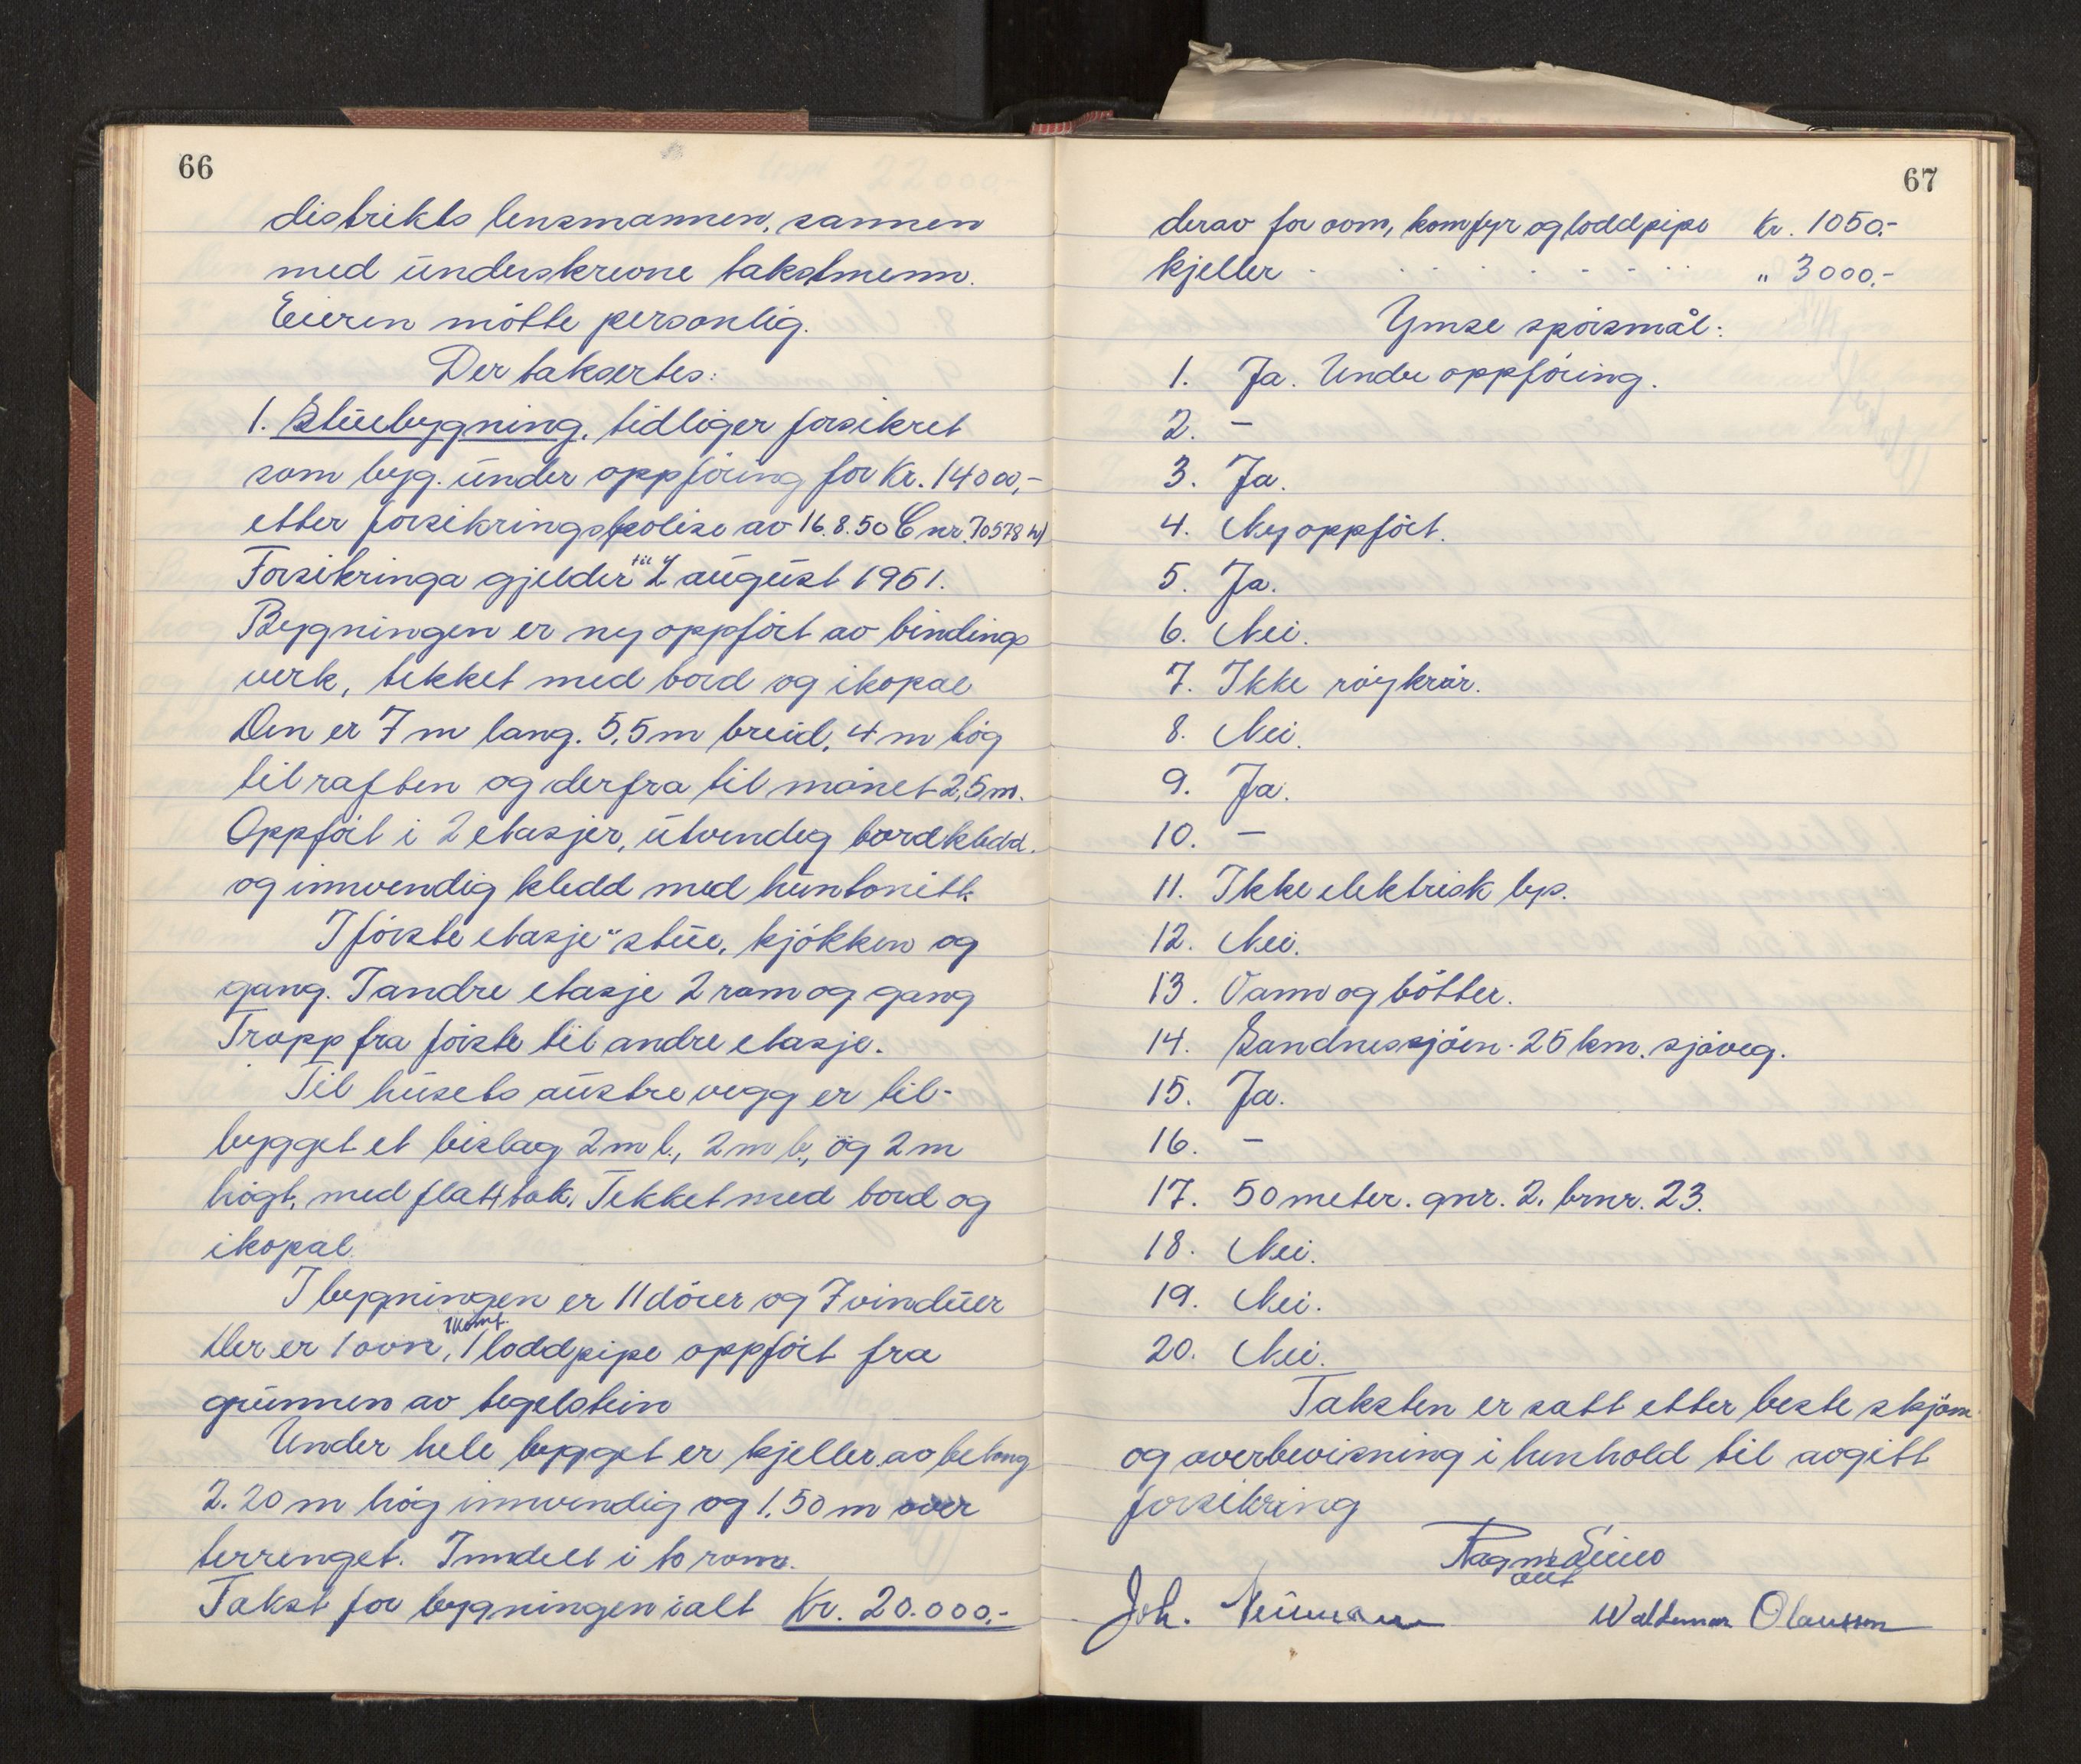 66
distrikts lensmannen, sammen
med underskrevne takstmenn.
Eieren møtte personlig.
Der taksertes:
1. Stuebygning, tidliger forsikret
som byg. under oppføring for Kr. 14000,-
etter forsikringspolise av 16.8.50 C nr. 70578 
Forsikringa gjelder til 2 august 1951.
Bygningen er ny oppført av bindings
verk, tekket med bord og ikopal
Den er 7 m lang. 5,5 m breid, 4 m høg
til raften og derfra til mønet 2,5 m.
Oppført i 2 etasjer, utvendig bordkledd.
og innvendig kledd med huntonitt.
I første etasje stue, kjøkken og
gang. I andre etasje 2 rom og gang
Tropp fra første til andre etasje.
Til husets austre vegg er til-
bygget et bislag 2 m l., 2 m b., og 2 m
høgt, med flatt tak. Tekket med bord og
ikopal.
I bygningen er 11 dører og 7 vinduer
Der er 1 ovn, 1 komf. 1 loddpipe oppført fra
grunnen av tegelstein
Under hele bygget er kjeller av betong
2.20 m høg innvendig og 1.50 m over
terrenget. Inndelt i to rom.
Takst for bygningen ialt Kr. 20.000,-
67
derav for ovn, komfyr og loddpipe Kr. 1050,-
kjeller . . . . . . . . " 3000,-
Ymse spørsmål:
1. Ja. Under oppføring.
2. –
3. Ja.
4. Ny oppført.
5. Ja.
6. Nei.
7. Ikke røykrør.
8. Nei.
9. Ja.
10. –
11. Ikke elektrisk lys.
12. Nei.
13. Vann og bøtter.
14. Sandnessjøen. 25 km. sjøveg.
15. Ja.
16. –
17. 50 meter. gnr. 2. brnr. 23.
18. Nei.
19. Nei.
20. Nei.
Taksten er satt etter beste skjønn
og overbevisning i henhold til avgitt
forsikring
Joh. Neumann Waldemar Olaussen